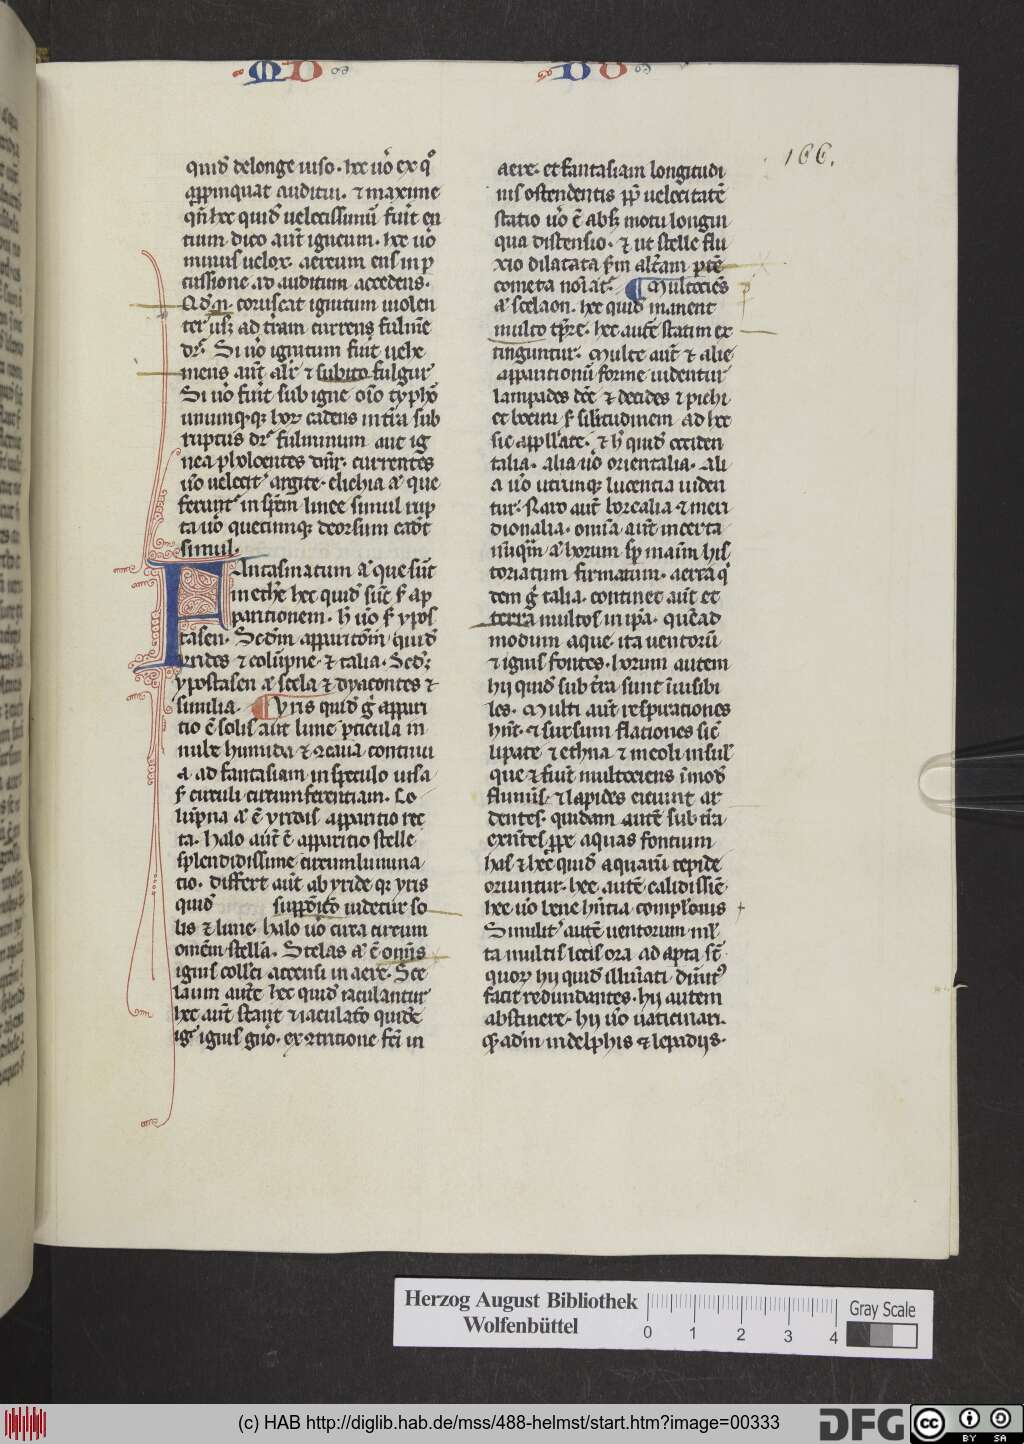 166.
quid delonge uiso. hec uo ex q°
appinquat auditui. ⁊ maxime
qn̄ hec quid uelocissimū fuit en
tium dico aut̄ igneum. hec uo
minus uelox. aereum ens in p
cussione ad auditum accedens.
coruscat ignitum uiolen
ter usq; ad t̄ram currens fulmīe
dr̄. Si uo ignitum fuit uehe
mens aut̄ alr̄ ⁊ subito fulgur
Si uo fuit sub igne oīo typhō
unumq;q; hoꝝ cadens in t̄ra sub
ruptus dr̄ fulminum aut ig
nea currentes
uo uelocit̄ argite. elichia a͛ que
ferunt̄ in sp̄em linee simul rup
ta uo quecumq; deorsum cadūt
simul.
FAntasmatum a͛ que sūt
in ethe hec quid sūt s͛ ap
paritionem. h̄ uo s͛ ypos
tasen. Scdm apparitōm quid
yrides ⁊ colūpne ⁊ talia. Scd͛
ypostasen a͛ scela ⁊ dyacontes ⁊
similia. Yris quid g͛ appari
tio ē solis aut lune pticula in
nube humida ⁊ ꝯcaua continu
a. ad fantasiam in speculo uisa
s͛ circuli circumferentiam. Co
lūpna a͛ ē yridis apparitio rec
ta. halo aut̄ ē apparitio stelle
splendidissime circumlumina
tio. differt aut̄ ab yride qꝛ yris
quid suppōito uidetur so
lis ⁊ lune. halo uo circa circum
omēm stellā. Scelas a͛ ē omīs
ignis coll̄ci accensi in aere. Sce
laum aut̄e hec quid iaculantur
hec aut̄ stant ⁊ iaculatō quidē
ig͛ ignis gnīo. ex ꝯtricione fc̄i in
aere. et fantasiam longitudi
nis ostendentis pp̄ uelocitatē
statio uo ē absq; motu longin
qua distensio. ⁊ ut stelle flu
xio dilatata s͛m alt̄am pt̄e
cometa noīat͛. Multociēs
a͛ scelaon. hec quid manent
multo tp̄re. hec aut̄e statim ex
tinguntur. Multe aut̄ ⁊ alie
apparitionū forme uidentur
lampades dc̄e ⁊ docides ⁊ pichi
et bocini s͛ silitudinem ad hec
sic appll̄ate. ⁊ h̄ quid occiden
talia. alia uo orientalia. ali
a uo utrinq; lucentia uiden
tur. Raro aut̄ borealia ⁊ meri
dionalia. omīa aut̄ incerta
nūqm̄ a͛ horum sp̄ mam̄ his
toriatum firmatum. aerea q
dem g͛ talia. continet aut̄ et
terra multos in ip̄a. quēad
modum aque. ita uentorū
⁊ ignis fontes. horum autem
hij quid sub t̄ra sunt inuisibi
les. Multi aut̄ respirationes
hn̄t. ⁊ sursum flationes sic̄
lipate ⁊ ethna ⁊ meoli insul͛
que ⁊ fiūt multociens ī mod
flumīs. ⁊ lapides eiciunt ar
dentes. quidam aut̄e sub t̄ra
exn̄tes ppe aquas fontium
has ⁊ hec quid aquarū tepide
oriuntur. hec aut̄e calidissiē.
hec uo bene hn̄tia comp̄lonis
Similit̄ aut̄e uentorum ml̄
ta multis locis ora ad apta sc̄
quoꝝ hij quid illuiati diuit͛
facit redundantes. hij autem
abstinere. hij uo uaticinari.
in delphis ⁊ lepadijs.
Herzog August Bibliothek
Wolfenbüttel
0 1 2 3 4
Gray Scale
(c) HAB http://diglib.hab.de/mss/488-helmst/start.htm?image=00333
DFG
cc BY SA